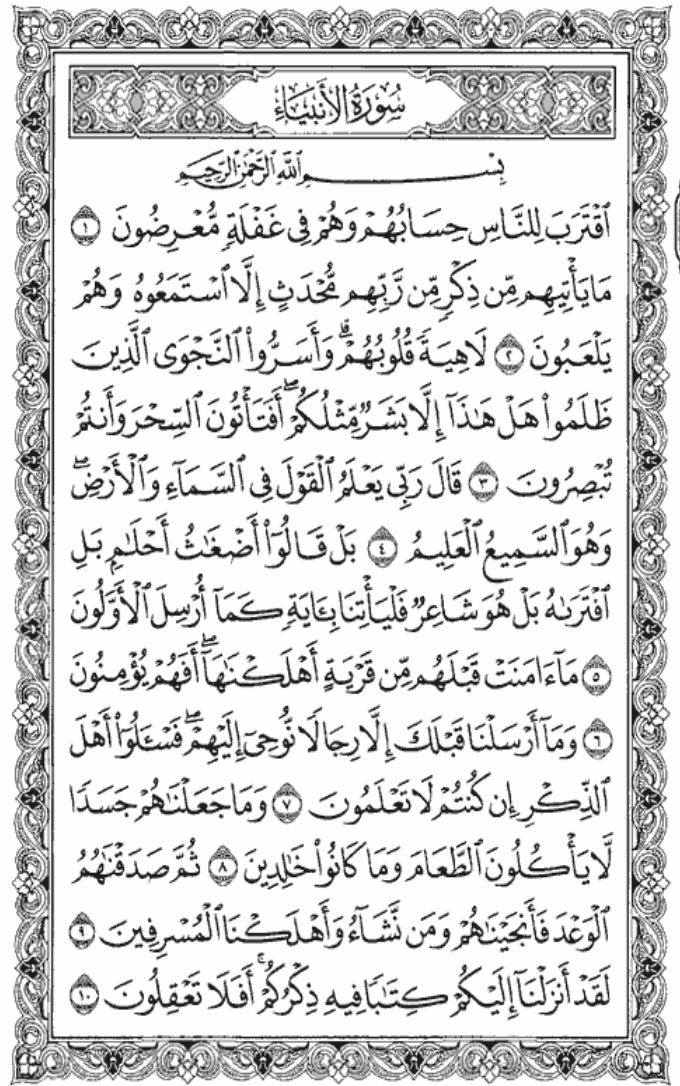 سُورَةُ الأَنبِيَاءِ
بِسْمِ ٱللَّهِ ٱلرَّحْمَٰنِ ٱلرَّحِيمِ
ٱقْتَرَبَ لِلنَّاسِ حِسَابُهُمْ وَهُمْ فِي غَفْلَةٍ مُّعْرِضُونَ ١
مَا يَأْتِيهِم مِّن ذِكْرٍ مِّن رَّبِّهِم مُّحْدَثٍ إِلَّا ٱسْتَمَعُوهُ وَهُمْ
يَلْعَبُونَ ٢ لَاهِيَةً قُلُوبُهُمْ ۗ وَأَسَرُّوا۟ ٱلنَّجْوَى ٱلَّذِينَ
ظَلَمُوا۟ هَلْ هَٰذَآ إِلَّا بَشَرٌ مِّثْلُكُمْ ۖ أَفَتَأْتُونَ ٱلسِّحْرَ وَأَنتُمْ
تُبْصِرُونَ ٣ قَالَ رَبِّي يَعْلَمُ ٱلْقَوْلَ فِي ٱلسَّمَآءِ وَٱلْأَرْضِ ۖ
وَهُوَ ٱلسَّمِيعُ ٱلْعَلِيمُ ٤ بَلْ قَالُوٓا۟ أَضْغَٰثُ أَحْلَٰمٍ بَلِ
ٱفْتَرَىٰهُ بَلْ هُوَ شَاعِرٌ فَلْيَأْتِنَا بِـَٔايَةٍ كَمَآ أُرْسِلَ ٱلْأَوَّلُونَ
٥ مَآ ءَامَنَتْ قَبْلَهُم مِّن قَرْيَةٍ أَهْلَكْنَٰهَآ ۖ أَفَهُمْ يُؤْمِنُونَ
٦ وَمَآ أَرْسَلْنَا قَبْلَكَ إِلَّا رِجَالًا نُّوحِيٓ إِلَيْهِمْ ۖ فَسْـَٔلُوٓا۟ أَهْلَ
ٱلذِّكْرِ إِن كُنتُمْ لَا تَعْلَمُونَ ٧ وَمَا جَعَلْنَٰهُمْ جَسَدًا
لَّا يَأْكُلُونَ ٱلطَّعَامَ وَمَا كَانُوا۟ خَٰلِدِينَ ٨ ثُمَّ صَدَقْنَٰهُمُ
ٱلْوَعْدَ فَأَنجَيْنَٰهُمْ وَمَن نَّشَآءُ وَأَهْلَكْنَا ٱلْمُسْرِفِينَ ٩
لَقَدْ أَنزَلْنَآ إِلَيْكُمْ كِتَٰبًا فِيهِ ذِكْرُكُمْ ۖ أَفَلَا تَعْقِلُونَ ١٠